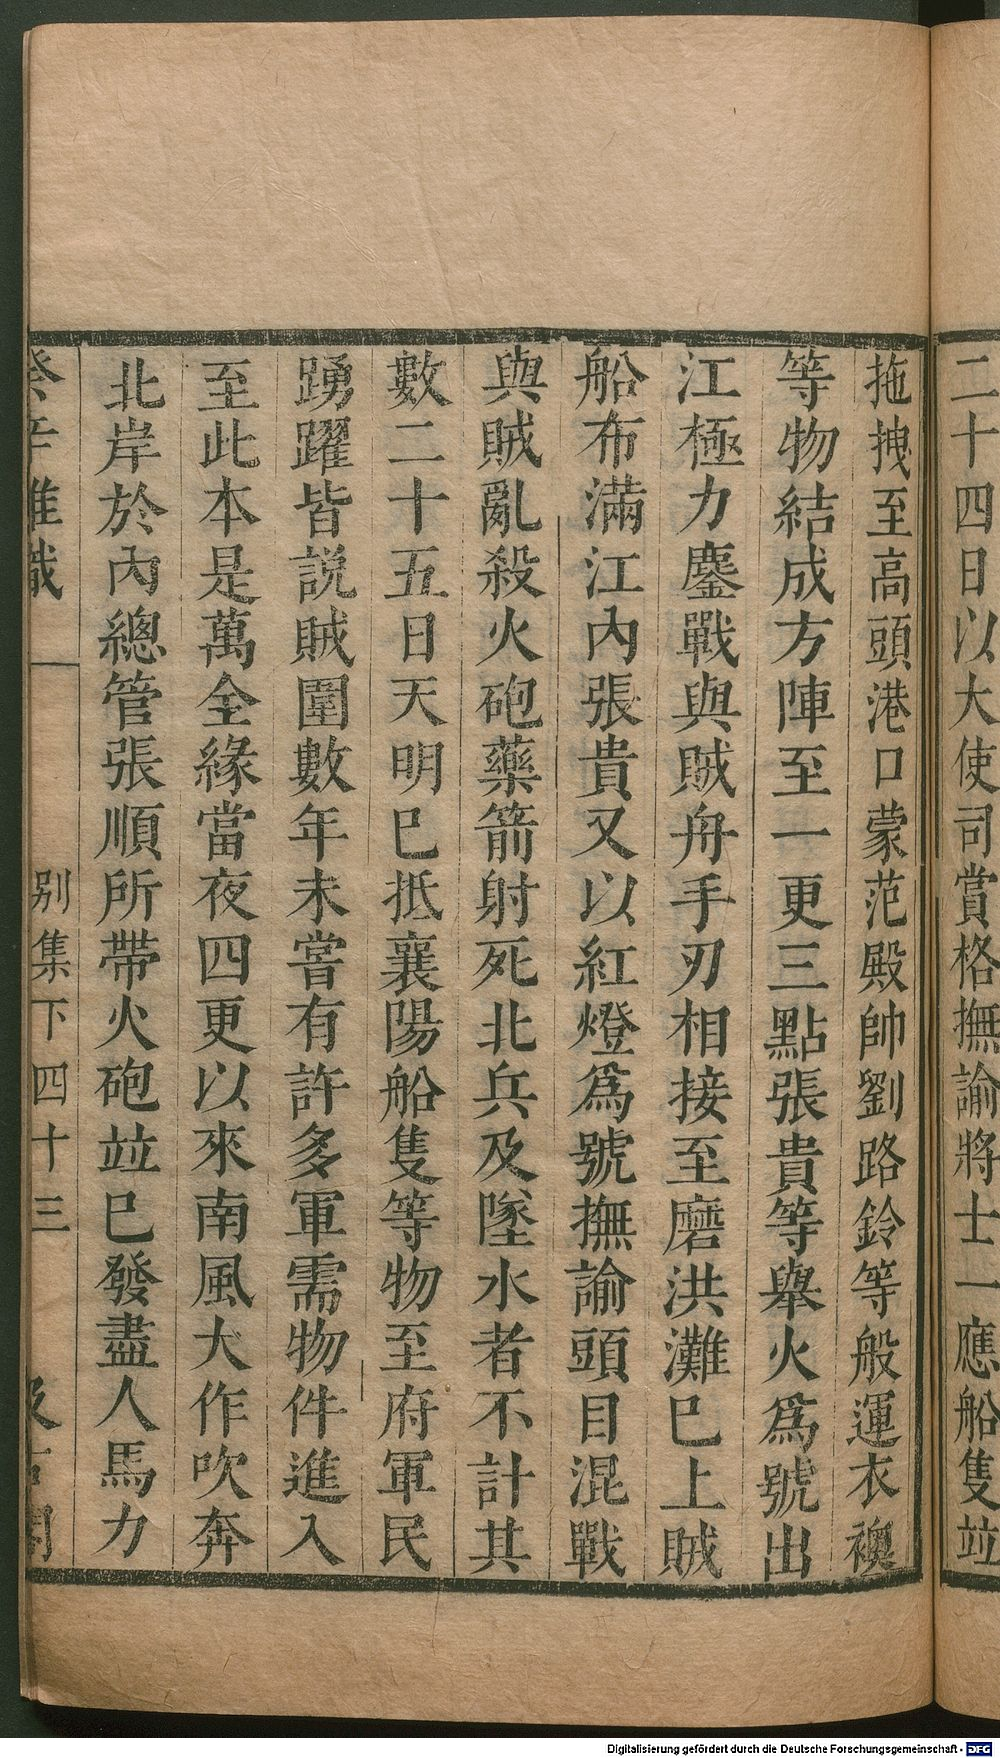 二十四日以大使司賞格撫諭將士一應船隻竝
拖拽至高頭港口蒙范殿帥劉路鈴等般運衣襖
等物結成方陣至一更三點張貴等舉火爲號出
江極力鏖戰與賊舟手刃相接至磨洪灘巳上賊
船布滿江內張貴又以紅燈爲號撫諭頭目混戰
與賊亂殺火砲藥箭射死北兵及墜水者不計其
數二十五日天明巳抵襄陽船隻等物至府軍民
踴躍皆説賊圍數年未嘗有許多軍需物件進入
至此本是萬全緣當夜四更以來南風大作吹奔
北岸於內總管張順所帶火砲竝巳發盡人馬力
癸辛雜識 別集下 四十三 汲古閣
Digitalisierung gefördert durch die Deutsche Forschungsgemeinschaft - DFG